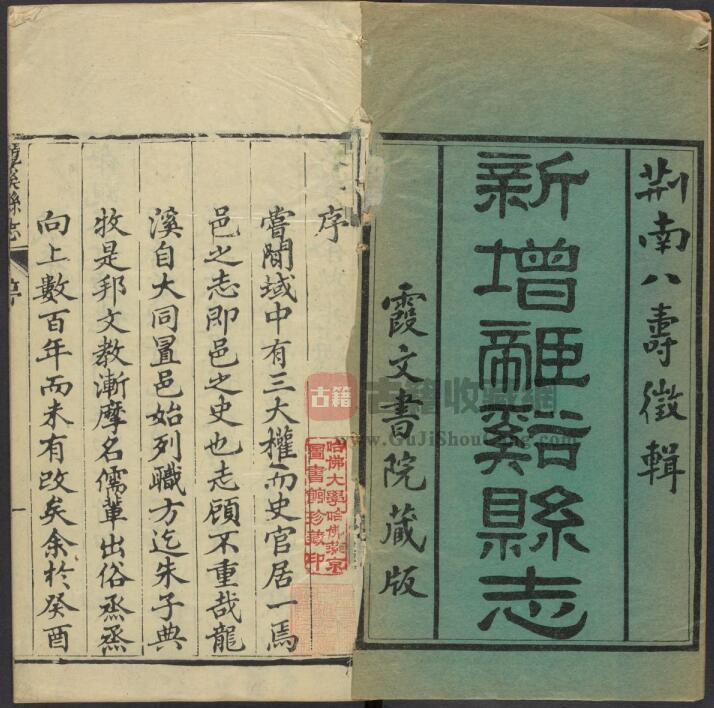 荆南八壽徵輯
新增龍谿縣志
霞文書院藏版
古籍
古籍收藏網
www.GuJiShouCang.com
哈佛大學哈佛燕京
圖書館珍藏印
序
嘗聞域中有三大權而史官居一焉
邑之志即邑之史也志顧不重哉龍
溪自大同置邑始列職方迄朱子典
牧是邦文教漸摩名儒輩出俗烝烝
向上數百年而未有改矣余於癸酉
龍溪縣志
序
一